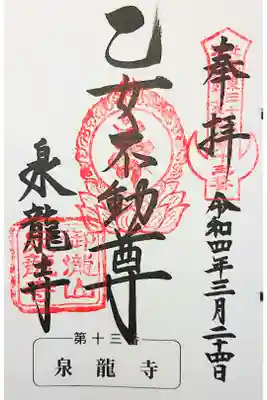 奉拝
令和四年三月二十四日
乙女不動尊
泉龍寺
第十三番
泉龍寺